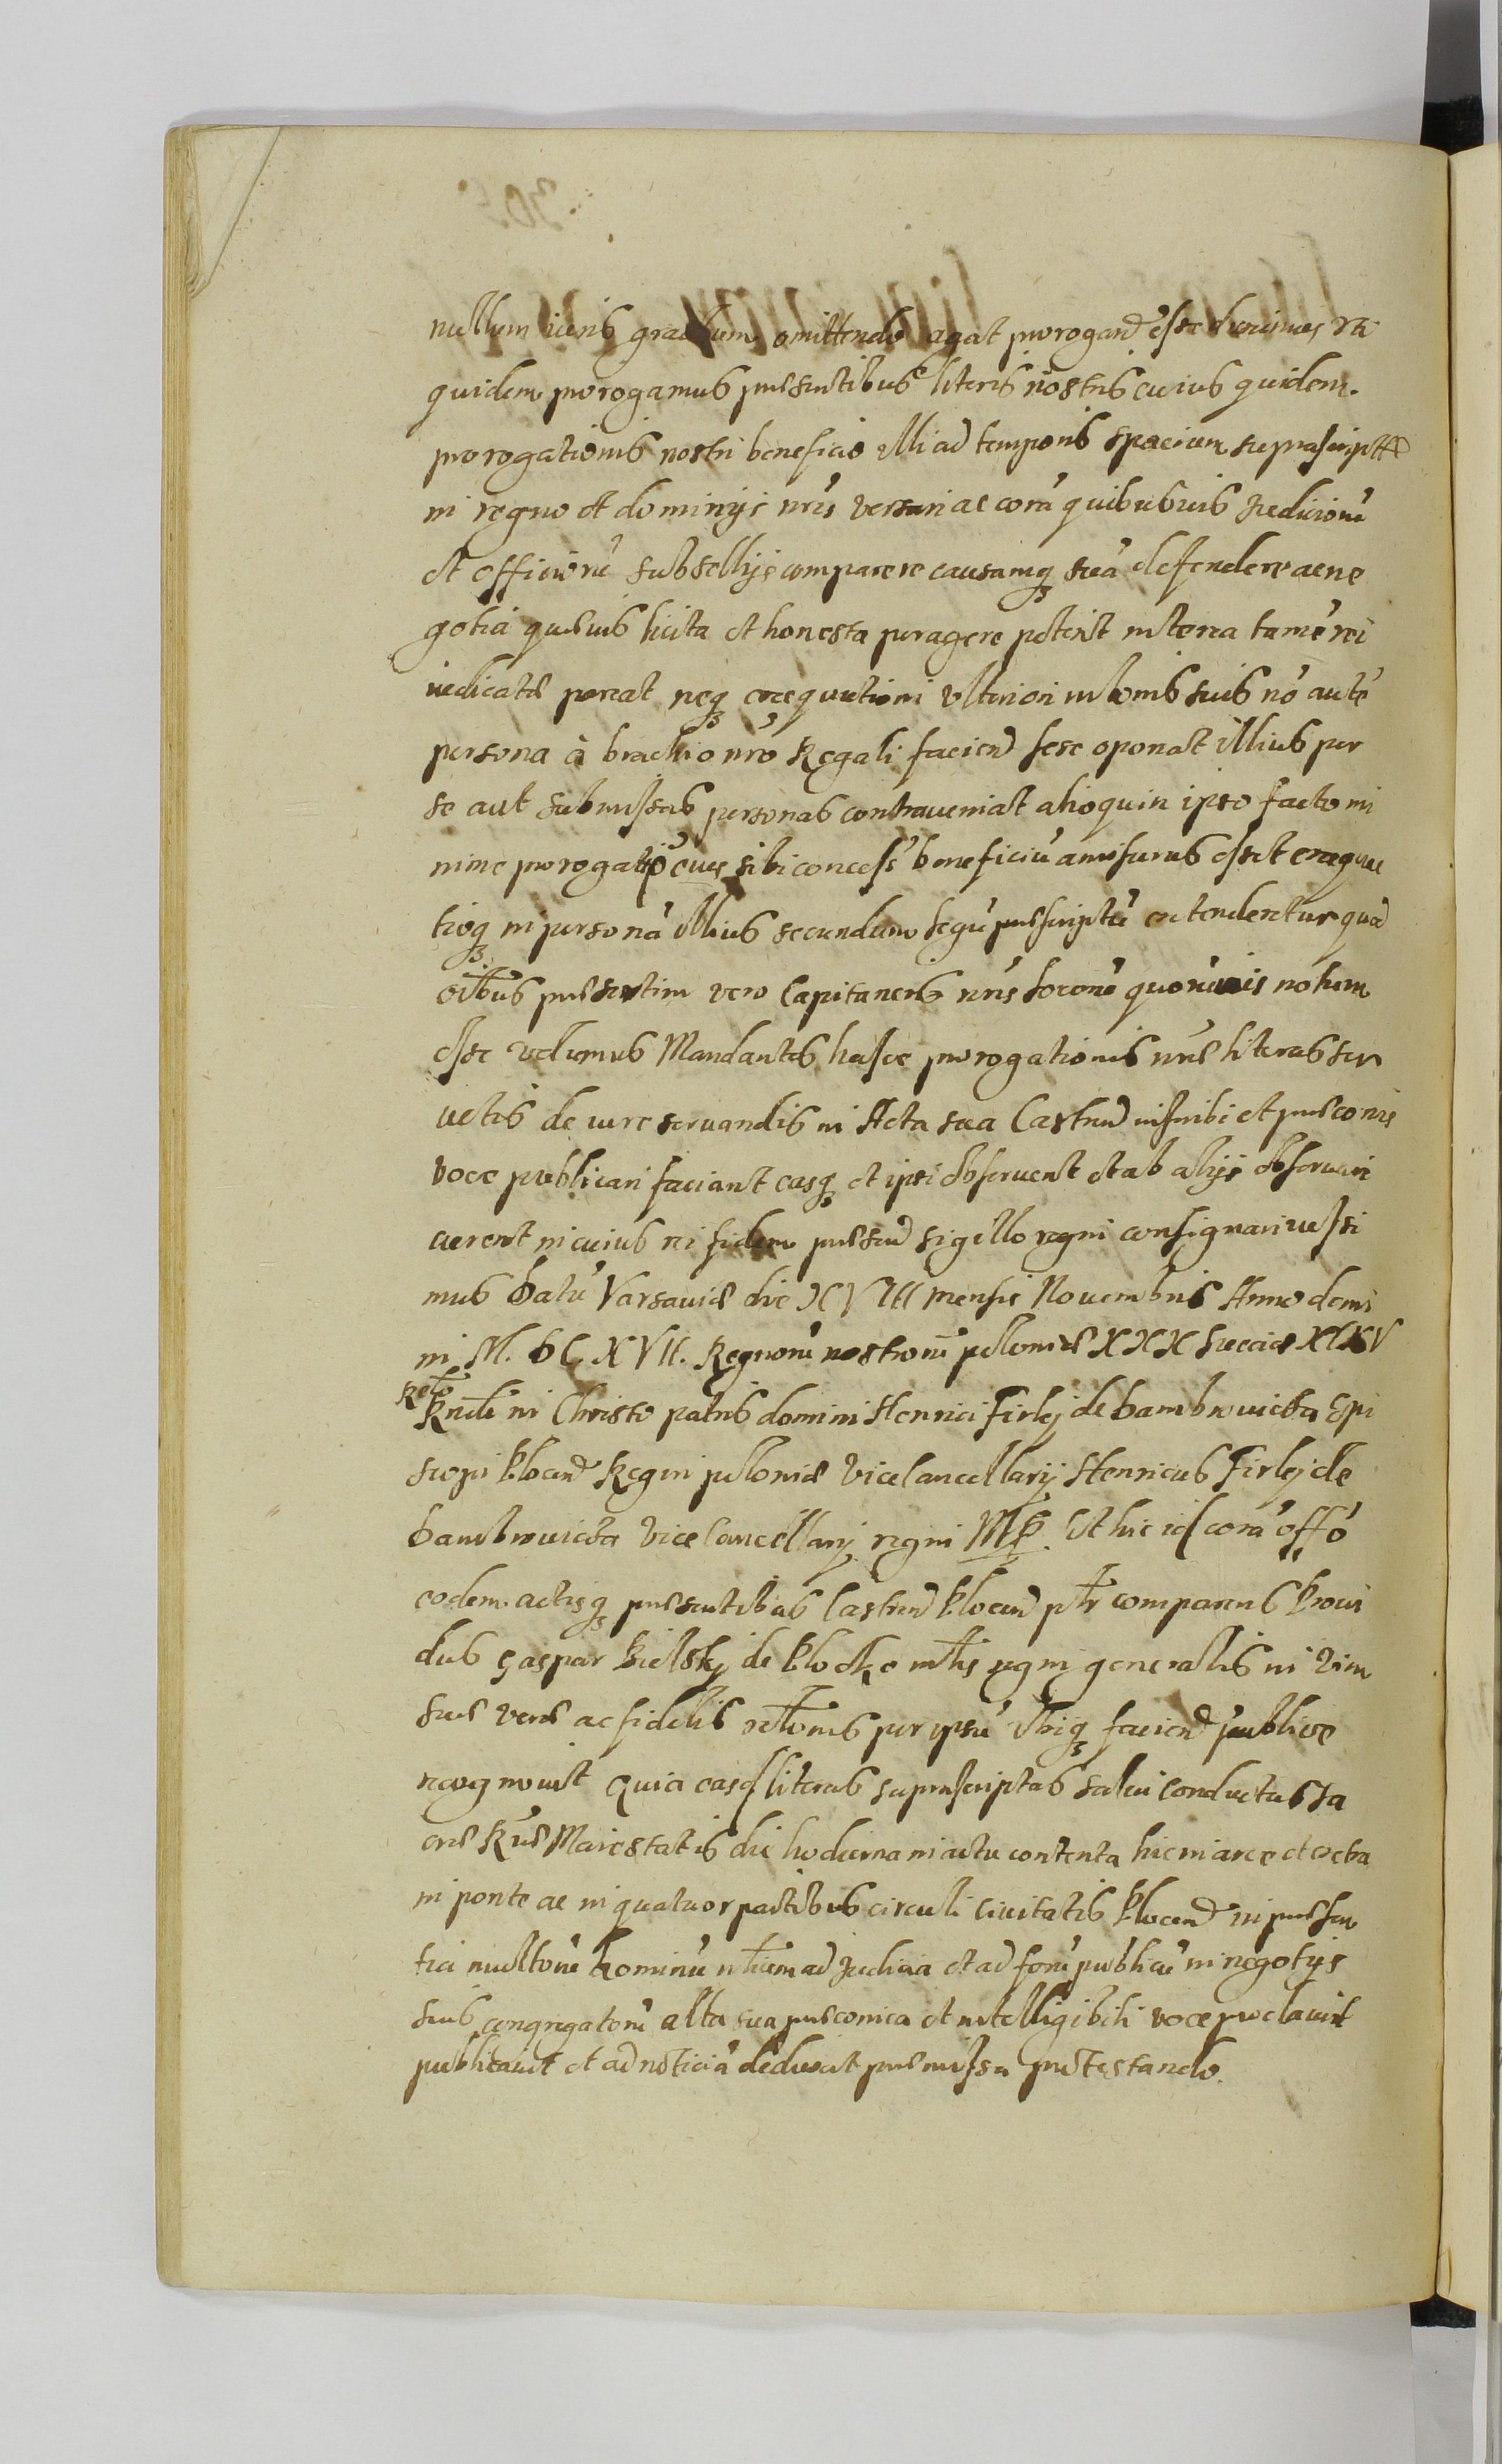 nullum iuris gradum omittendo agat prorogand esse duximus Uti
quidem prorogamus præsentibus literis nostris cuius quidem
prorogationis nostri beneficio illi ad temporis spacium suprascript
in regno et dominijs nris versari ac corã quibusuis Judiciorũ
et officiorũ subsellijs comparere causamq suã defendere ac ne
gotia quæuis licita et honesta peragere poterit interea tamẽ rei
iudicatæ pareat neq exequutioni ulteriori in bonis suis nõ autẽ
persona à brachio nrõ Regali faciend sese oponat illius per
se aut submissas personas contraueniat alioquin ipso facto mi
nime prorogatiõ eius sibi concess beneficiũ amisurus esset exequu
tioq in personã illius secundum legũ præscriptũ extenderetur quod
oibus præsertim vero Capitaneis nris locorũ quorũuis notum
esse volumus Mandantes hasce prorogationis nræ literas ser
uatis de iure seruandis in Acta sua Castren inscribi et præconis
voce publicari faciant easq et ipsi obseruent et ab alijs obseruari
curent in cuius rei fidem præsen sigillo regni consignari iussi
mus Datũ Varsauiæ die XVIII mensis Nouembris Anno domi
ni M. DC XVII. Regnorũ nostrorũ poloniæ XXX sueciæ XXV
Relo
Rndi in Christo patris domini Henrici Firlej de Dambrouicza Epi
scopi plocen Regni poloniæ Vicecancellarij Henricus Firlej de
Dambrouicza Vice Cancellarij regni MP. Et hic id corã offõ
eodem actisq præsentibus Castren plocen pltr comparens Proui
dus Gaspar Bielsky de Plocko mltis regni generalis in vim
suæ veræ ac fidelis reltionis per ipsũ Utriq faciend publice
recognouit Quia easd literas suprascriptas salui conductus Sa
cræ Ræ Maiestatis die hodierna in actu contenta hic in arce et extra
in ponte ac in quatuor partibus circuli ciuitatis Plocen in præsen
tia multorũ hominũ ad Judicia et ad forũ publicũ in negotijs
suis congregatorũ alta sua præconica et intelligibili voce proclauit
publicauit et ad noticiã deduxit præmissa protestando.